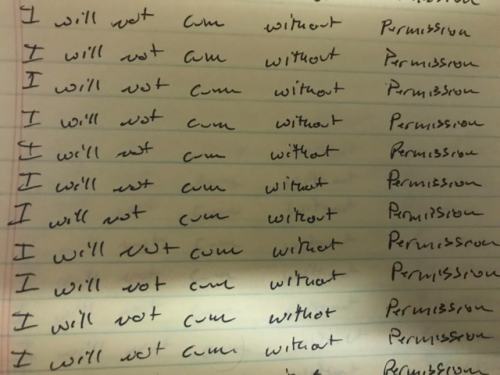 Permission
I will not cum without Permission
I will not cum without Permission
I will not cum without Permission
I will not cum without Permission
I will not cum without Permission
I will not cum without Permission
I will not cum without Permission
I will not cum without Permission
I will not cum without Permission
I will not cum without Permission
I will not cum without Permission
Permission